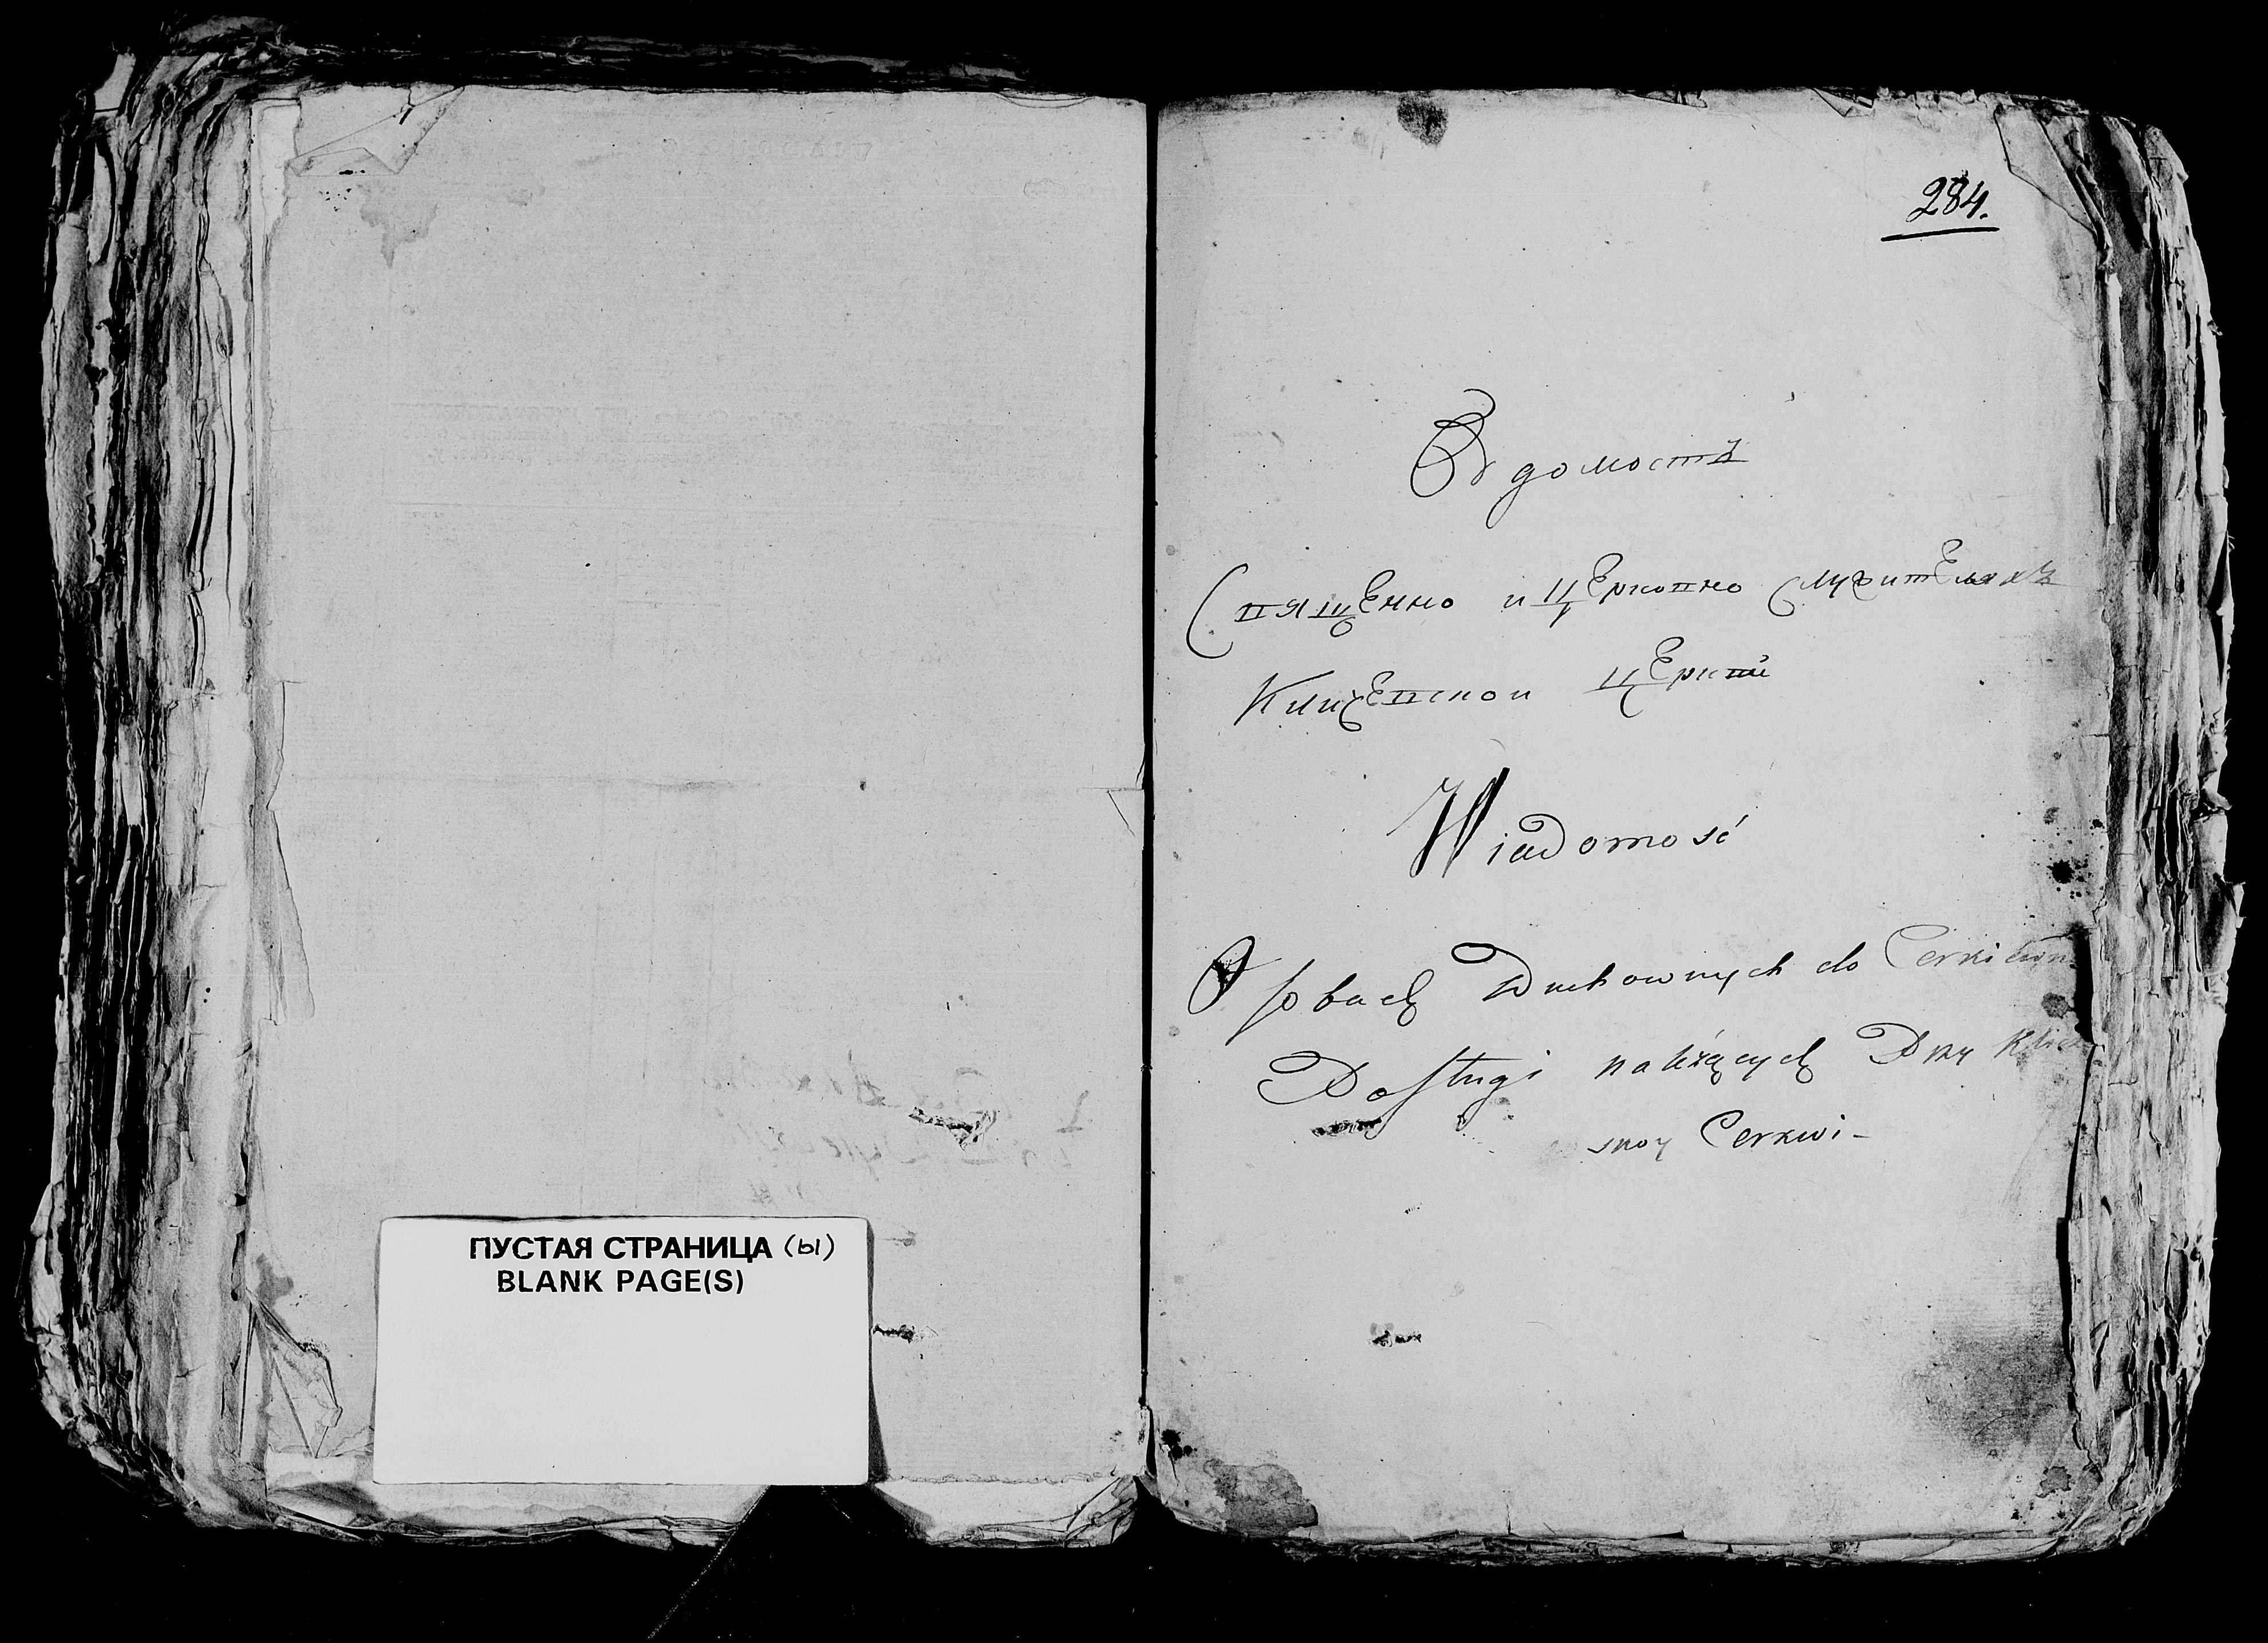 ПУСТАЯ СТРАНИЦА (ы)
BLANK PAGE(S)
284.
Вѣдомость
Священно и церковно служителяхъ
Клищевской церкви
Wiadomość
O osobach Duchownych do
Posługi należących Przy
skoy Cerkwi